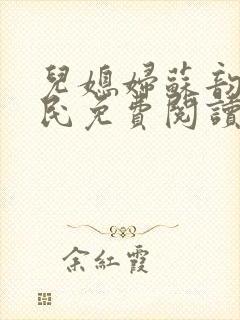 兒媳婦蘇韵
民免費閱讀
余紅霞